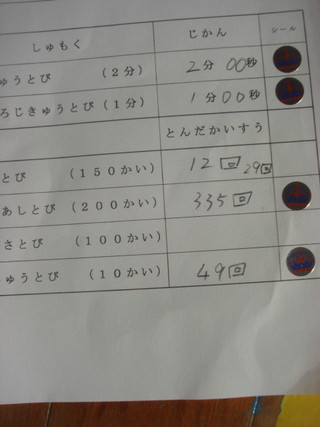 しゅもく じかん シール
ゅうとび (2分) 2分 00秒
ろじきゅうとび (1分) 1分00秒
とんだかいすう
とび (150かい) 12回 29回
あしとび (200かい) 335回
さとび (100かい)
ゅうとび (10かい) 49回